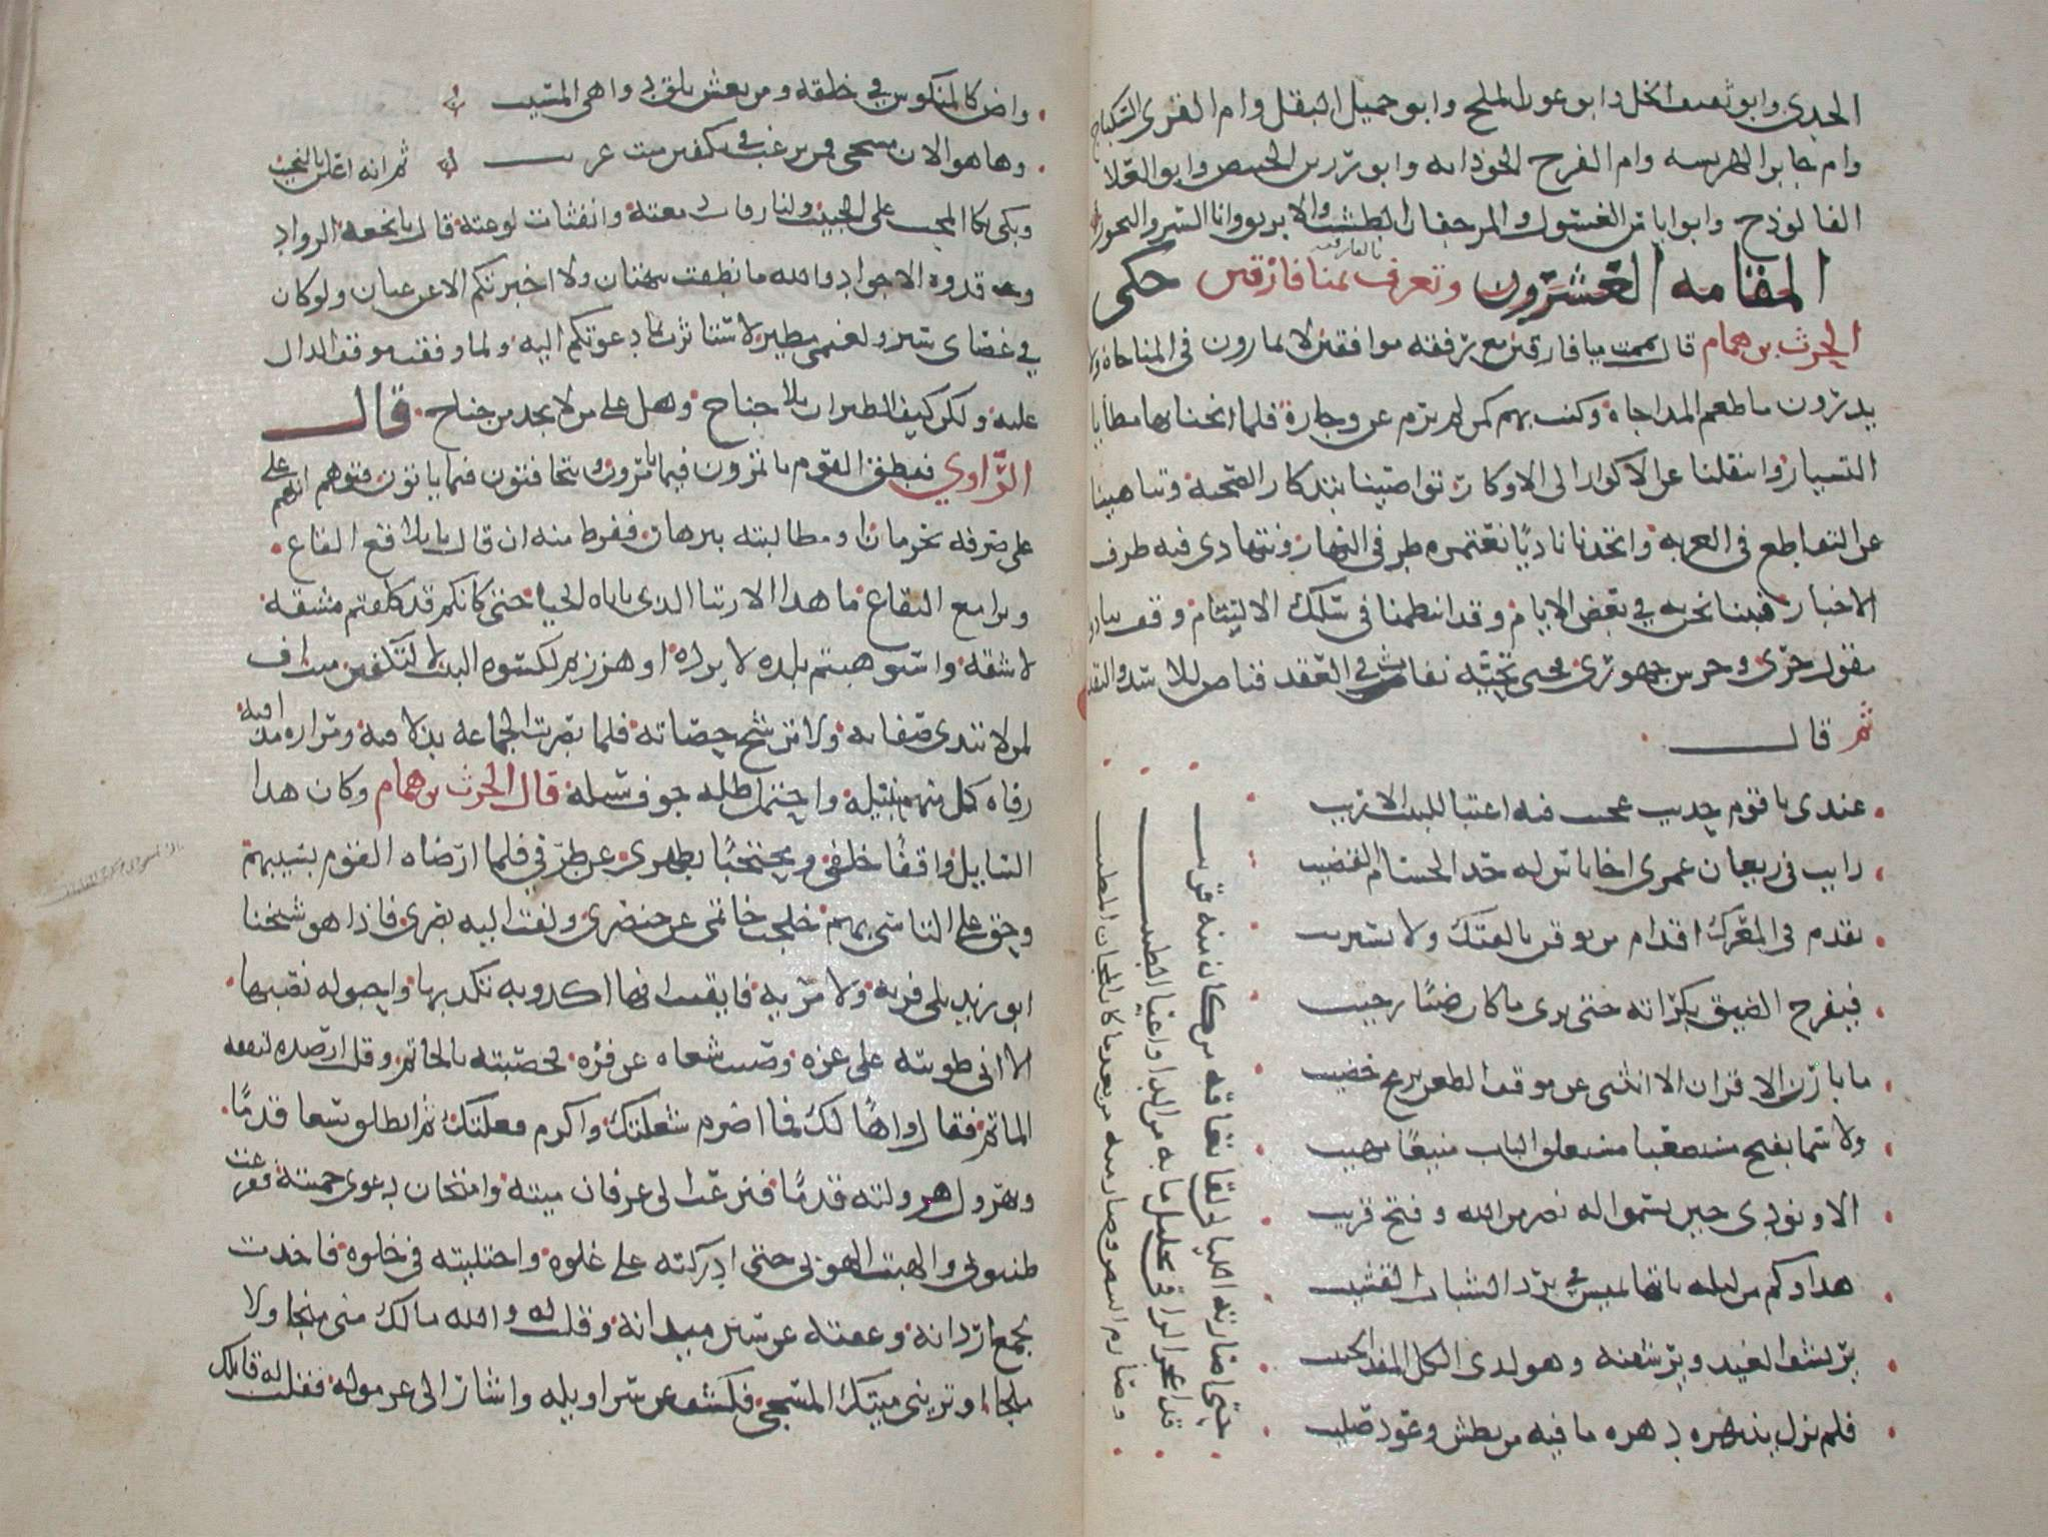 الجدى وابو ثقيف الخل وابو عون الملح وابو جميل البقل وام القرى السكباج
وام جابر الهريسه وام الفرح الجوذابه وابو رزين الخبيص وابو العلا
الفالوذج وابو اياس الغسول والمرجفان الطشت والابريق وابا السرو البخور
المقامه العشرون وتعرف بميافارقين حكى
بالفارقيه
الحرث بن همام قال يممت ميافارقين مع رفقه موافقين لا يمارون فى المناجاة ولا
يدرون ما طعم المداجاة وكنت بهم كمن لم يرم عن وجاره فلما انخنا بها مطايا
التسيار وانتقلنا عن الاكوار الى الاوكار تواصينا بتذكار الصحبة وتناهينا
عن التقاطع فى الغربه واتخذنا ناديًا نعتمره طرفى النهار ونتهادى فيه طرف
الاخبار فبينا نحن به في بعض الايام وقد انتظمنا فى سلك الالتئام وقف بنا ذو
مقول جرى وجرس جهورى فحيى تحيّه نفاث في العقد قناص للاسد والنقد
ثم قال
عندى يا قوم حديث عجيب فيه اعتبار للبيب الاريب
رايت فى ريعان عمرى اخا باس له حد الحسام القضيب
يقدم فى المعرك اقدام من يوقن بالفتك ولا يستريب
فيفرج الضيق بكراته حتى يرى ما كان ضنكا رحيب
ما بارز الاقران الا انثنى عن موقف الطعن برمح خضيب
ولا سما يفتح مستصعبا مستغلق الباب منيعًا مهيب
الا ونودى حين يسمو له نصر من الله وفتح قريب
هذا وكم من ليله باتها يميس في برد الشباب القشيب
يرتشف الغيد ويرشفنه وهو لدى الكل المفدى الحبيب
فلم يزل يبتزه دهره ما فيه من بطش وعود صليب
حتى اصارته الليالى لقا يعافه من كان منه قريب
قد اعجز الراقى تحليل ما به من الداء واعيا الطبيب
وصارم البيض وصارمنه من بعد ما كان المجاب المجيب
واض كالمنكوس في خلقه ومن يعش يلق دواهى المشيب
وها هو الان مسجى فمن يرغب في تكفين ميت غريب ثم انه اعلن بالنحيب
وبكى بكا المحب على الحبيب ولما رقات دمعته وانفثات لوعته قال يا نجعة الرواد
وقدوه الاجواد والله ما نطقت ببهتان ولا اخبرتكم الا عن عيان ولو كان
في عصاى سير ولغيمى مطير لاستاثرت بما دعوتكم اليه ولما وقفت موقف الدال
عليه ولكن كيف الطيران بلا جناح وهل على من لا يجد من جناح قال
الرّاوي فطفق القوم ياتمرون فيما يامرون ويتخافتون فيما ياتون فتوهم انهم
على صرفه بحرمان او مطالبته ببرهان ففرط منه ان قال يا يلامع القاع
ويرامع البقاع ما هذا الارتيا الذى ياباه الحيا حتى كانكم قد كلفتم مشقه
لا شقه واستوهبتم بلده لا برده او هززتم لكسوه البيت لا لتكفين ميت اف
لمن لا تندى صفاته ولا ترشح حصاته فلما بصرت الجماعة بذلاقته ومراره مذاقته
رفاه كل منهم بنيله واحتمل طله خوف سيله قال الحرث بن همام وكان هذا
السايل واقفًا خلفى ومحتجبًا بظهرى عن طرفي فلما ارضاه القوم بسيبهم
وحق على التاسى بهم خلجت خاتمى عن خنصرى ولفت اليه بصرى فاذا هو شيخنا
ابو زيد بلا فريه ولا مريه فايقنت انها اكذوبه تكذبها واحبوله نصبها
الا انى طويته على غره وصنت شغاه عن فره فحصبته بالخاتم وقلت ارصده لنفقه
الماتم فقال واهًا لك فما اضرم شعلتك واكرم فعلتك ثم انطلق يسعا قدمًا
ويهرول هرولته قدمًا فنزعت الى عرفان ميته وامتحان دعوى حميته فقرعت
ظنبوبى والهبت الهوبى حتى ادركته على غلوه واجتليته فى خلوه فاخذت
بجمع اردانه وعقته عن سنن ميدانه وقلت له والله ما لك منى منجا ولا
ملجا او ترينى ميتك المسجى فكشف عن سراويله واشار الى غرموله فقلت له قاتلك